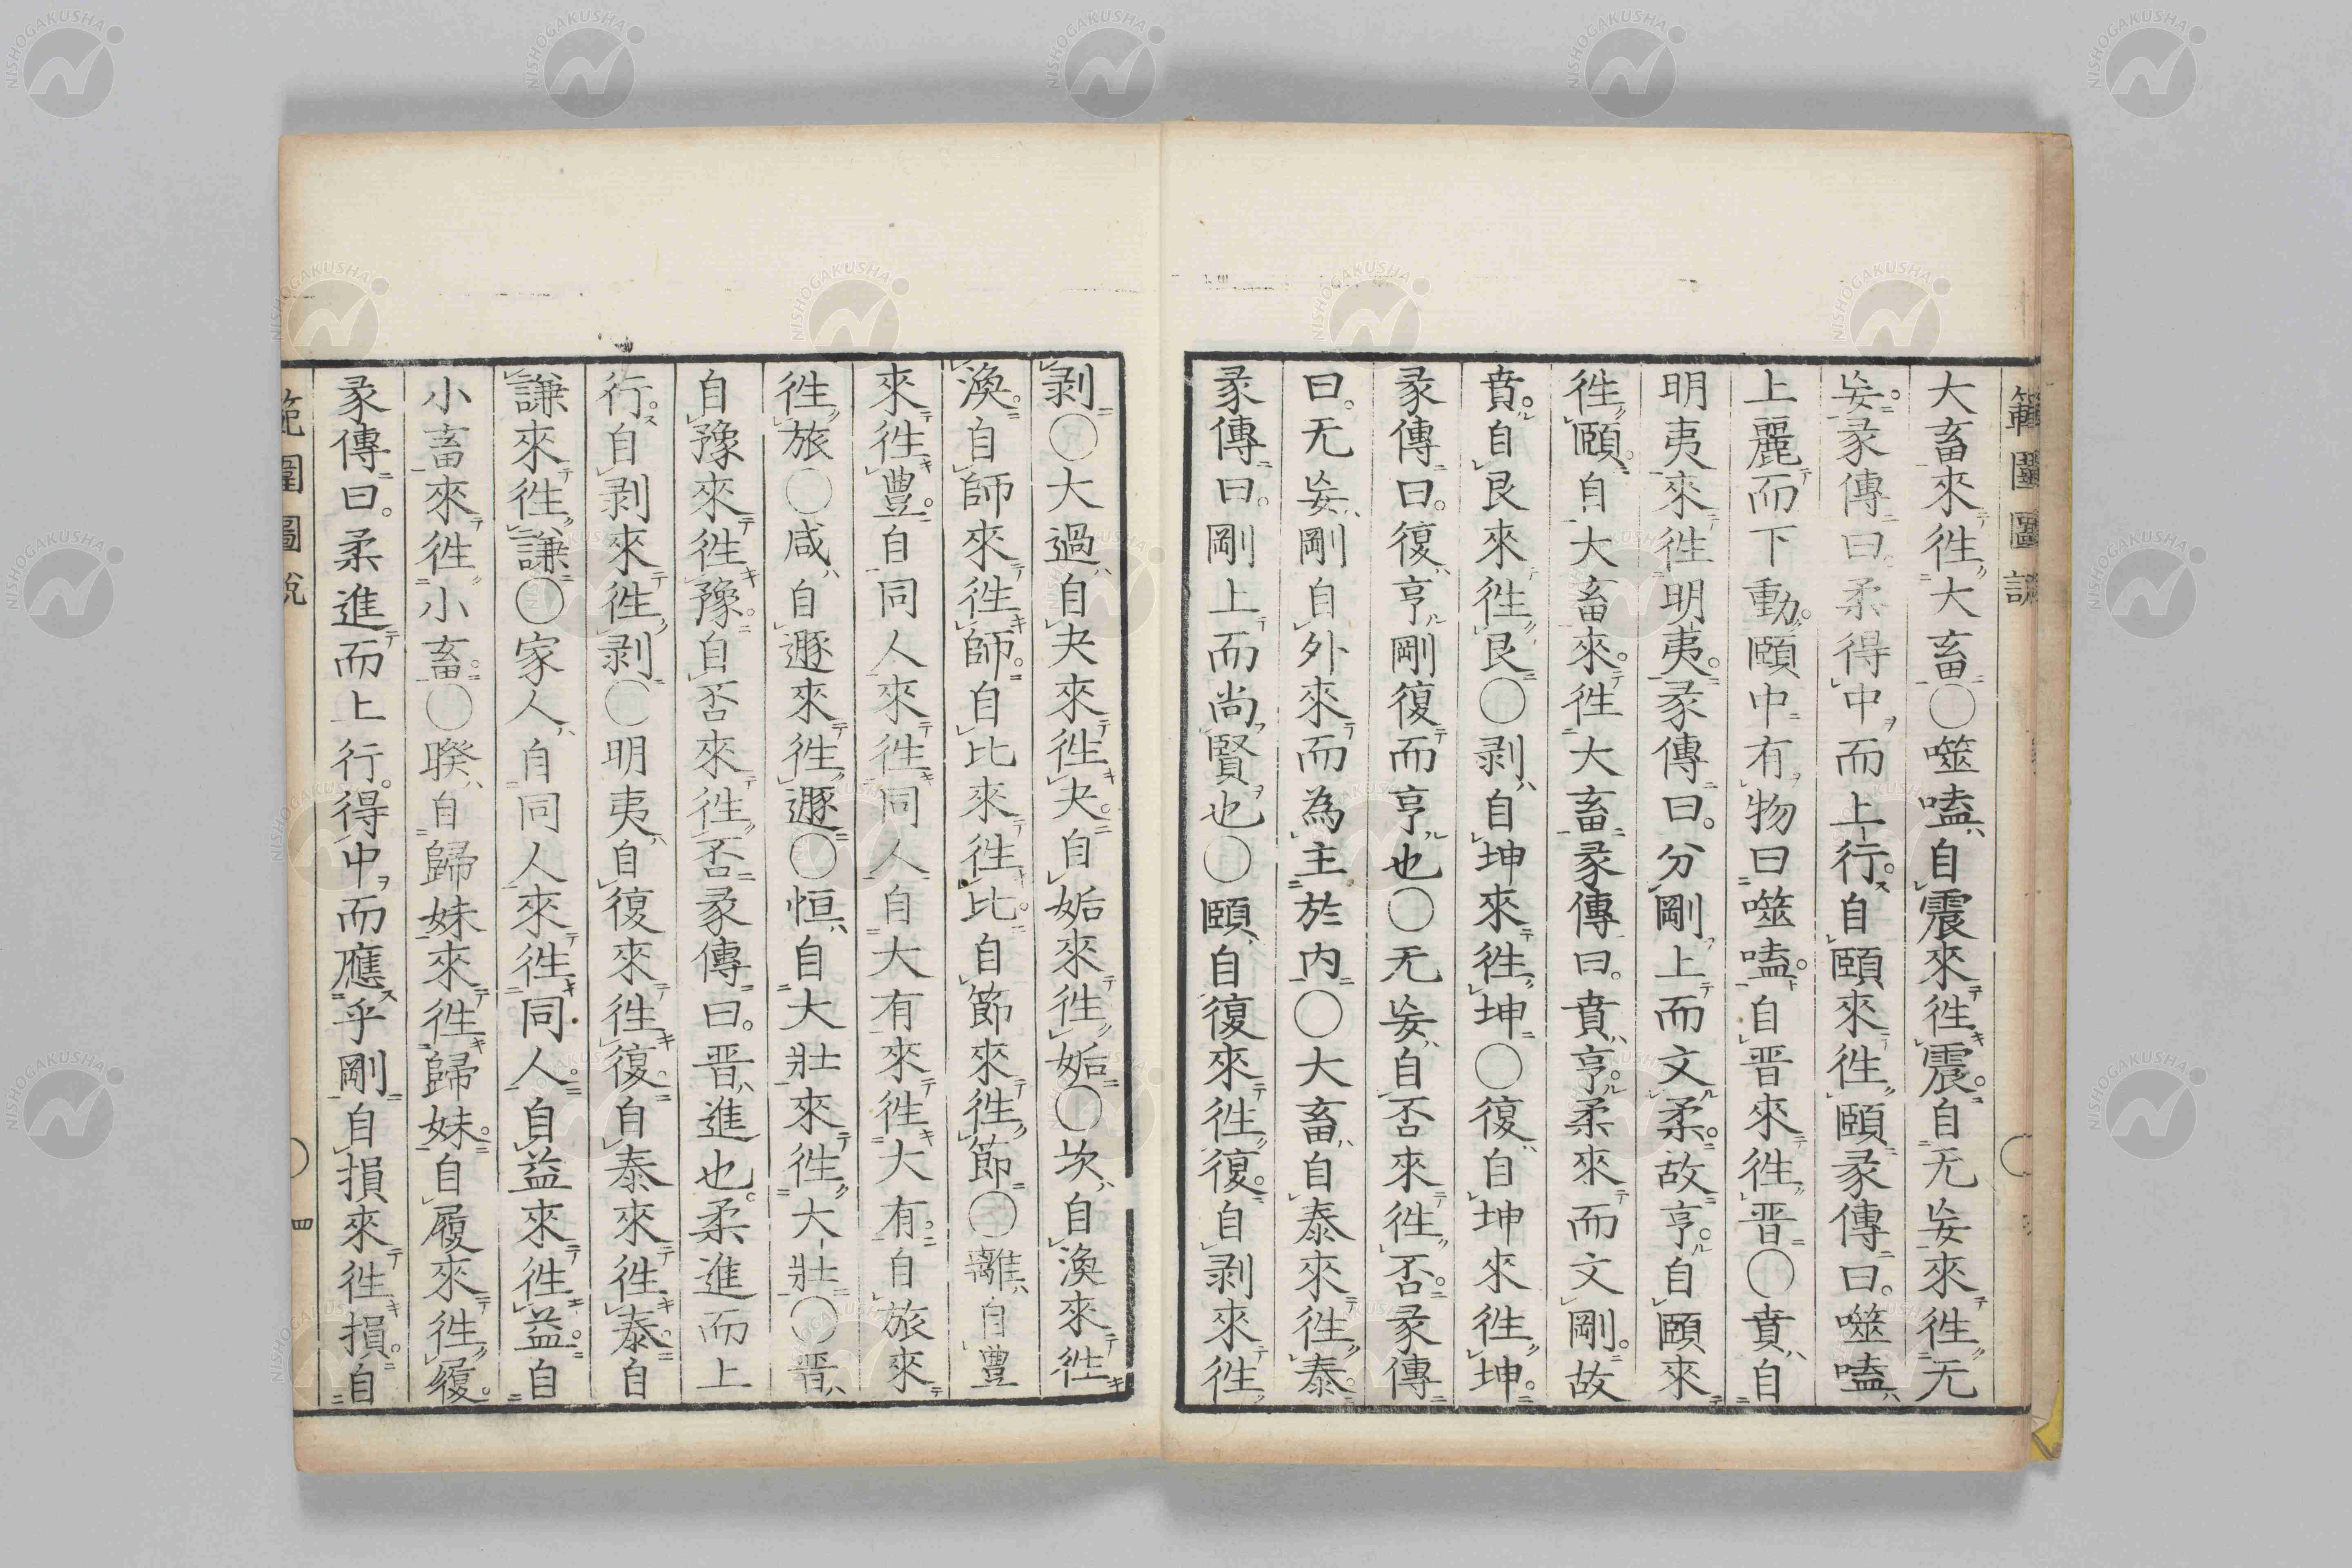 範圍圖説
大畜來徃大畜○噬嗑自震來徃震。自无妄來徃无
妄。彖傳曰柔得中而上行。自頤來徃頤彖傳曰。噬嗑
上麗而下動。頤中有物曰噬嗑。自晋來徃晋○賁自
明夷來徃明夷。彖傳曰。分剛上而文柔。故亨。自頤來
徃頤。自大畜來。徃大畜彖傳曰。賁亨。柔來而文剛。故
賁。自艮來徃艮○剥自坤來徃坤○復自坤來徃坤。
彖傳曰。復亨剛復而亨也○无妄自否來徃否。彖傳
曰。无妄剛自外來而為主於内○大畜自泰來徃泰。
彖傳曰。剛上而尚賢也○頤自復來徃復。自剥來徃
剥○大過自夬來徃夬。自姤來徃姤○坎自渙來徃
渙。自師來徃師。自比來徃比。自節來徃節○離自豊
來徃豊。自同人來徃同人自大有來徃大有。自旅來
徃旅○咸自遯來徃遯○恒自大壯來徃大壯○晋
自豫來徃豫。自否來徃否彖傳曰。晋進也。柔進而上
行。自剥來徃剥○明夷自復來徃復。自泰來徃泰。自
謙來徃謙○家人自同人來徃同人。自益來徃益。自
小畜來徃小畜。○睽自歸妹來徃歸妹。自履來徃履。
彖傳曰。柔進而上行。得中而應乎剛自損來徃損。自
範圍圖説
四
NISHOGAKUSHA